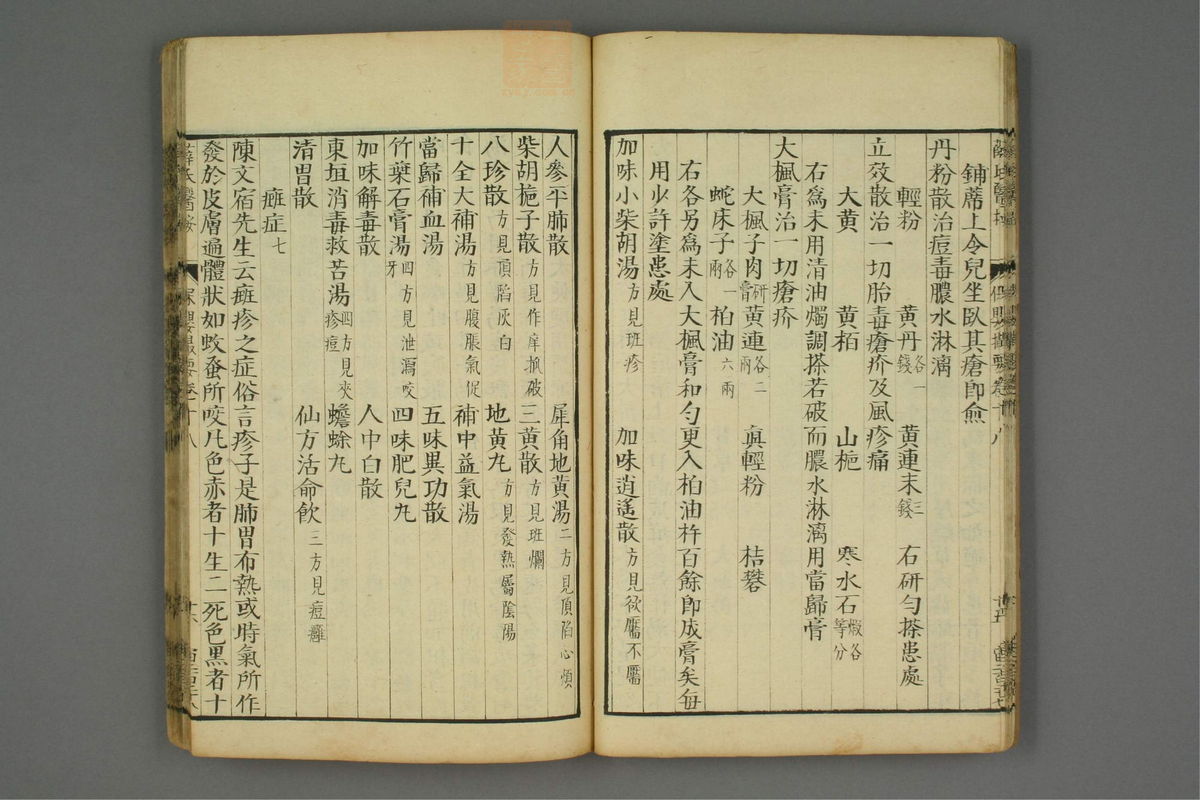 鋪蓆上令兒坐臥其瘡卽愈
丹粉散治痘毒膿水淋漓
輕粉 黃丹各一錢 黃連末三錢 右研勻搽患處
立效散治一切胎毒瘡疥及風疹痛
大黃 黃栢 山梔 寒水石煅各等分
右爲末用清油燭調搽若破而膿水淋漓用當歸膏
大楓膏治一切瘡疥
大楓子肉研膏 黃連各二兩 眞輕粉 枯礬
蛇床子各一兩 柏油六兩
右各另爲末入大楓膏和勻更入柏油杵百餘卽成膏矣每
用少許塗患處
加味小柴胡湯方見班疹 加味逍遙散方見欲靨不靨
人參平肺散 犀角地黃湯二方見頂陷心煩
柴胡梔子散方見作痒抓破 三黃散方見班爛
八珍散方見頂陷灰白 地黃丸方見發熱屬陰陽
十全大補湯方見腹脹氣促 補中益氣湯
當歸補血湯 五味異功散
竹葉石膏湯四方見泄瀉咬牙 四味肥兒丸
加味解毒散 人中白散
東垣消毒救苦湯四方見夾疹痘 蟾蜍丸
清胃散 仙方活命飲三方見痘癰
㿀症七
陳文宿先生云㿀疹之症俗言疹子是肺胃布熱或時氣所作
發於皮膚遍體狀如蚊蚤所咬凡色赤者十生一死色黑者十
薛氏醫按
保嬰撮要卷十八